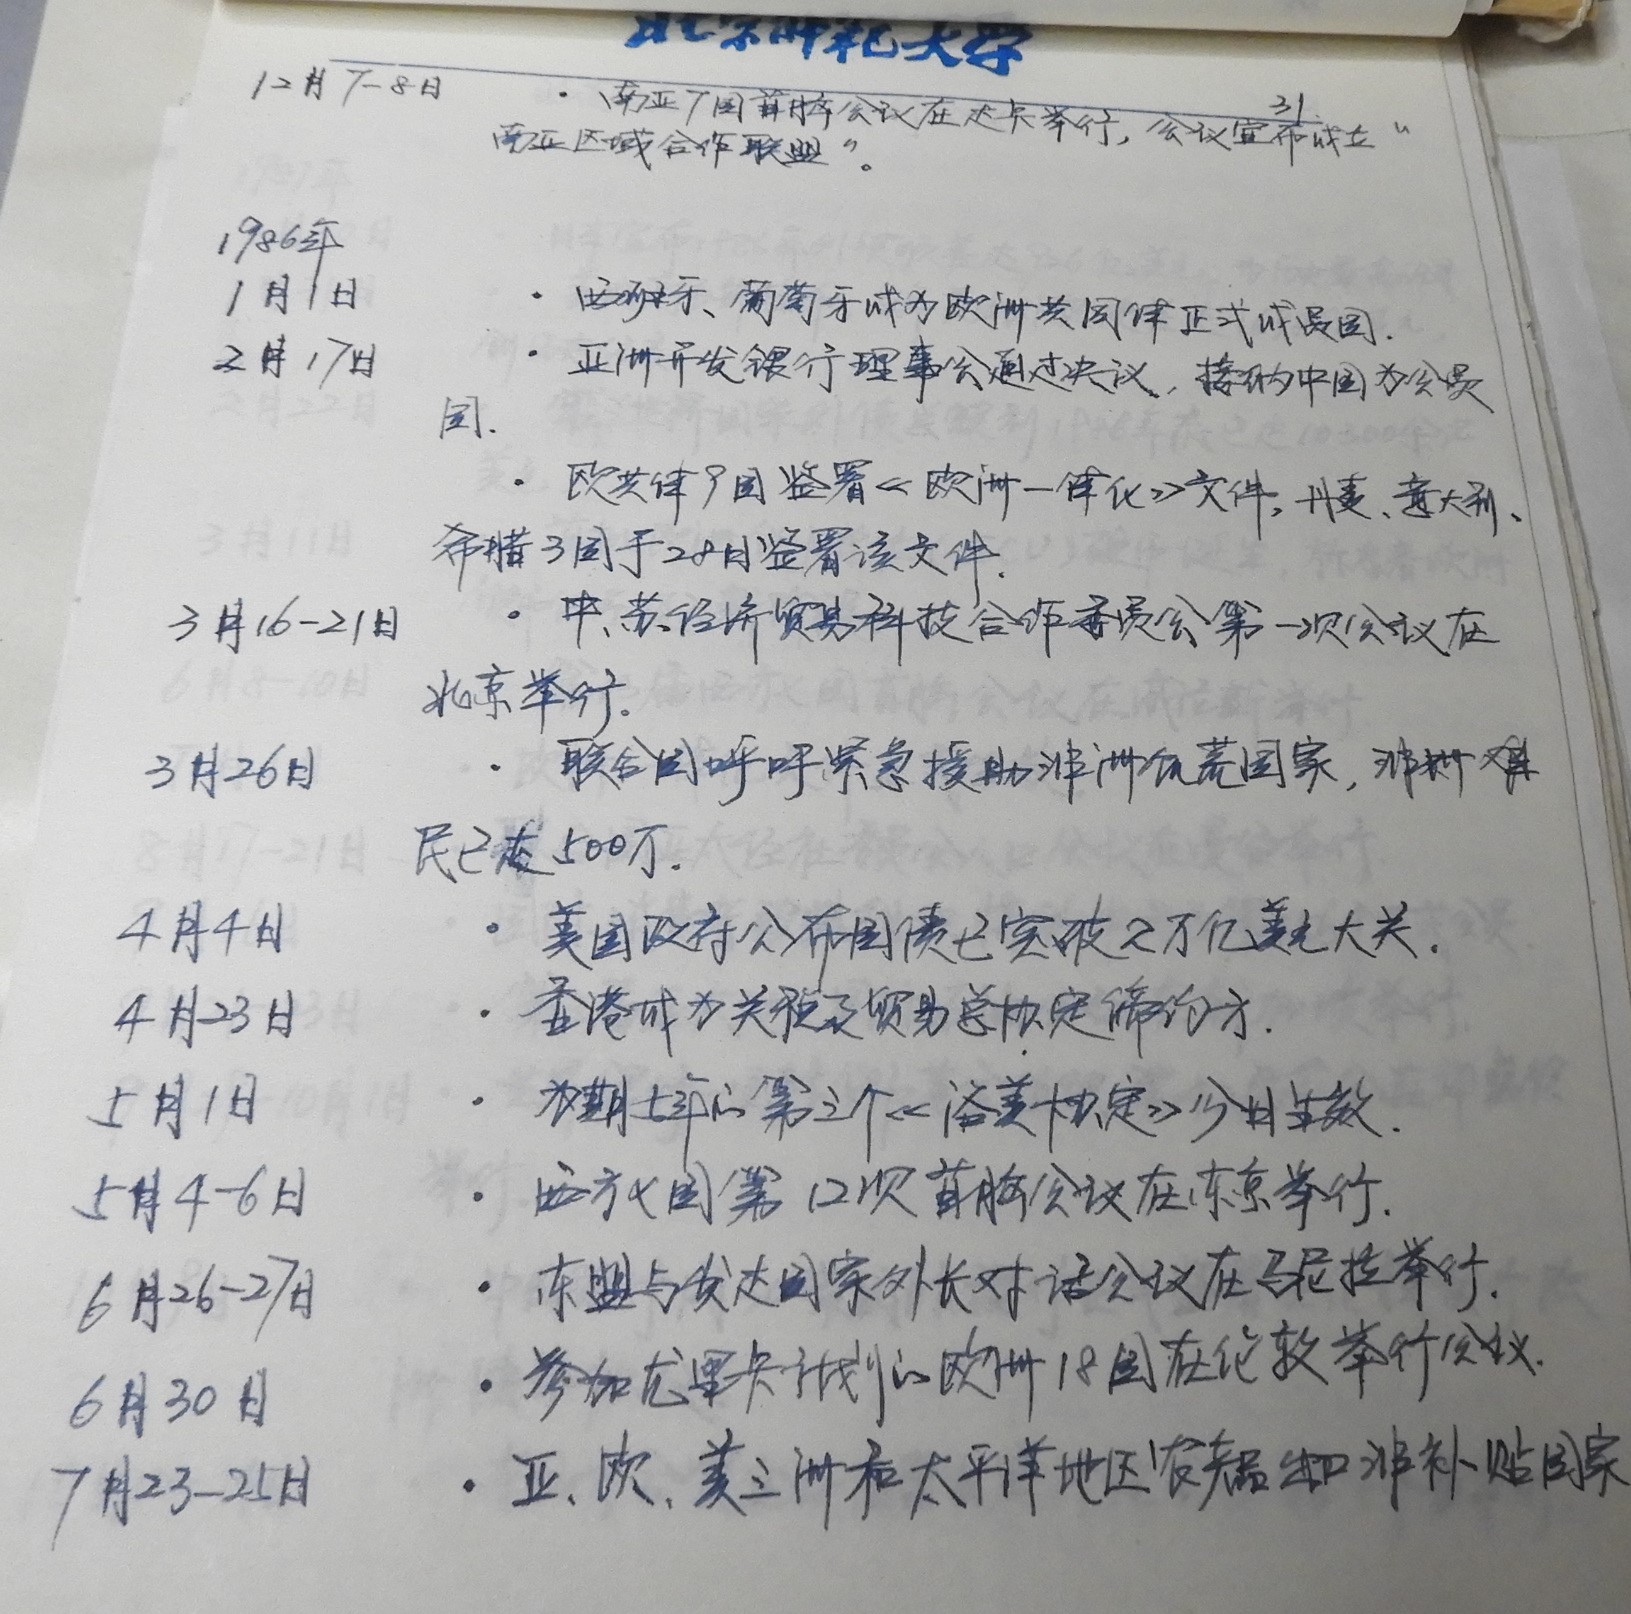 北京师范大学
31
12月7-8日 · 南亚7国首脑会议在达卡举行，会议宣布成立“
南亚区域合作联盟”。
1986年
1月1日 · 西班牙、葡萄牙成为欧洲共同体正式成员国.
2月17日 · 亚洲开发银行理事会通过决议，接纳中国为会员
国.
· 欧共体9国签署《欧洲一体化》文件，丹麦、意大利、
希腊3国于28日签署该文件.
3月16-21日 · 中、苏经济贸易科技合作委员会第一次会议在
北京举行.
3月26日 · 联合国呼吁紧急援助非洲饥荒国家，非洲
民已达500万.
4月4日 · 美国政府公布国债已突破2万亿美元大关.
4月23日 · 香港成为关税及贸易总协定缔约方.
5月1日 · 为期五年的第三个《洛美协定》今日生效.
5月4-6日 · 西方七国第12次首脑会议在东京举行.
6月26-27日 · 东盟与发达国家外长对话会议在马尼拉举行.
6月30日 · 参加尤里卡计划的欧洲18国在伦敦举行会议.
7月23-25日 · 亚、欧、美三洲和太平洋地区农产品出口非补贴国家